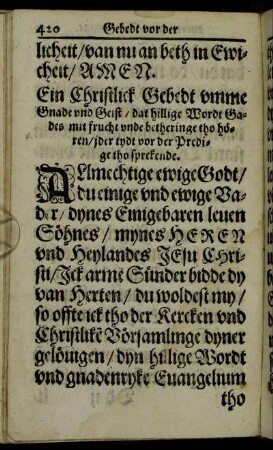 420 Gebedt vor der
licheit/van nu an beth in Ewi-
cheit/AMEN.
Ein Christlick Gebedt vmme
Gnade vnd Geist/dat hillige Wordt Ga-
des mit frucht vnde betheringe tho hö-
ren/jder tydt vor der Predi-
ge tho sprekende.
ALmechtige ewige Godt/
du einige vnd ewige Va-
der/dynes Einigebaren leuen
Söhnes/mynes HEREN
vnd Heylandes JEsu Chri-
sti/Jck arme Sünder bidde dy
van Herten/du woldest my/
so offte ick tho der Kercken vnd
Christlikē Vörsamlinge dyner
gelöuigen/dyn hillige Wordt
vnd gnadenryke Euangelium
tho